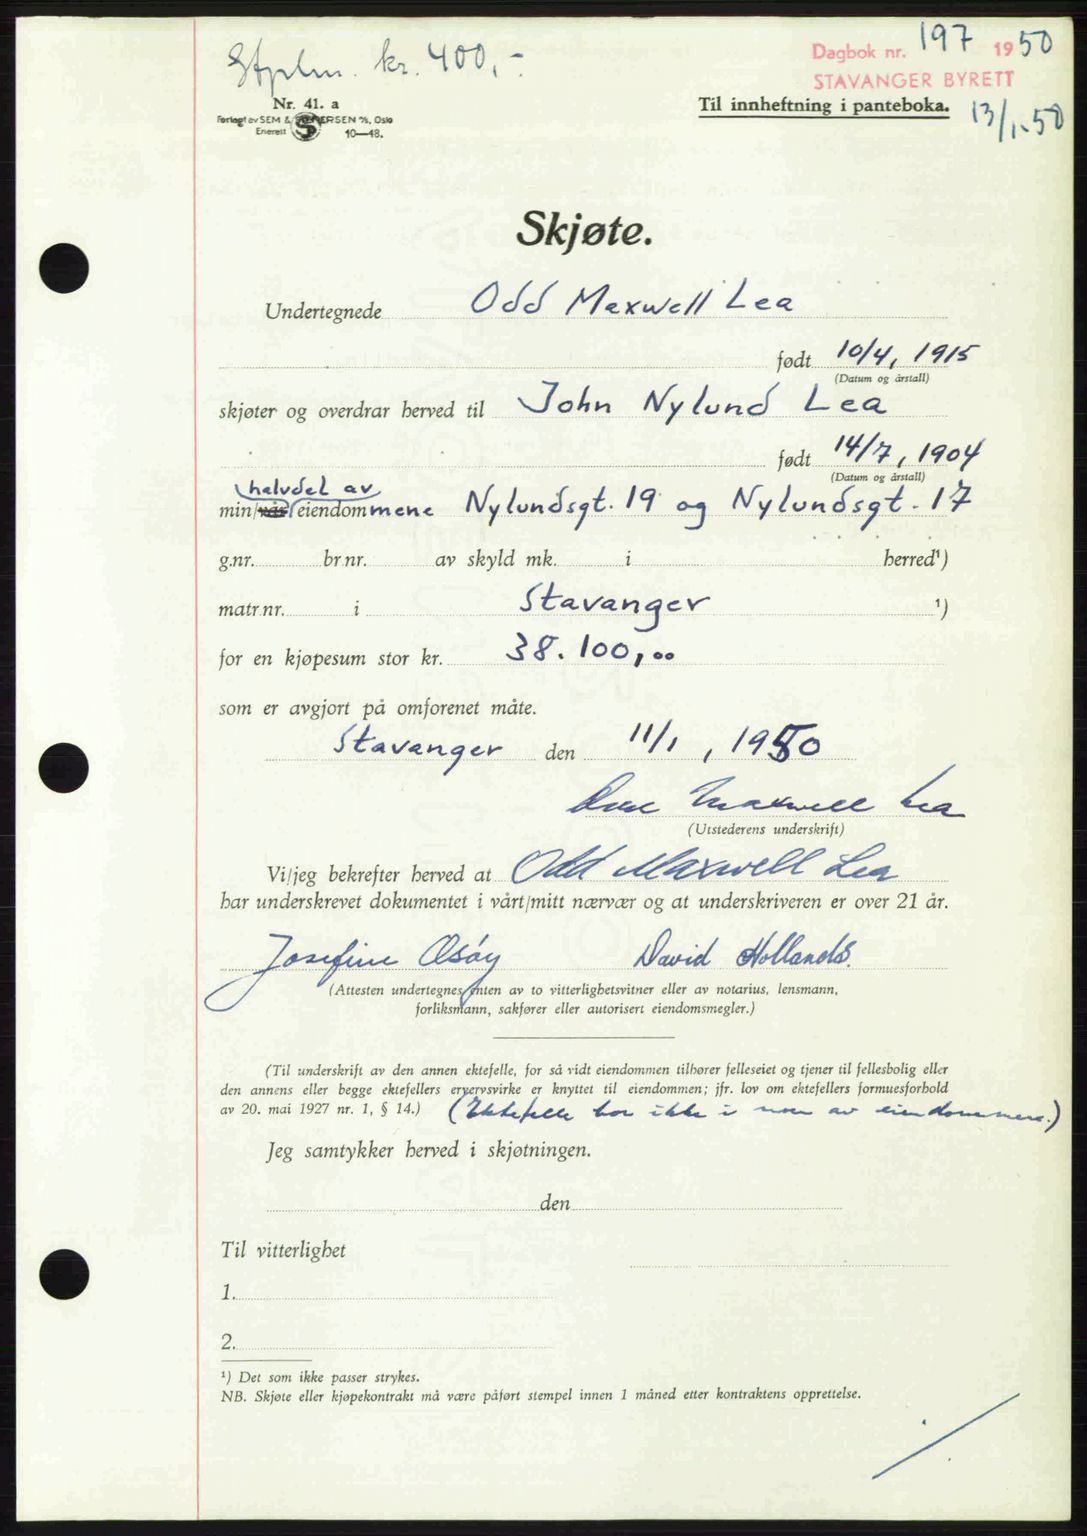 Stplm. kr. 400,-
Dagbok nr. 197 1950
STAVANGER BYRETT
Nr. 41. a
Til innheftning i panteboka. 13/1-50
Forlagt av SEM & STENERSEN A/S, Oslo
Enerett 10—48.
Skjøte.
Undertegnede Odd Maxwell Lea
født 10/4, 1915
(Datum og årstall)
skjøter og overdrar herved til John Nylund Lea
født 14/7, 1904
(Datum og årstall)
halvdel av
min/vår eiendommene Nylundsgt. 19 og Nylundsgt. 17
g.nr. br.nr. av skyld mk. i herred¹)
matr.nr. i Stavanger ¹)
for en kjøpesum stor kr. 38.100,00
som er avgjort på omforenet måte.
Stavanger den 11/1, 1950
Odd Maxwell Lea
(Utstederens underskrift)
Vi/jeg bekrefter herved at Odd Maxwell Lea
har underskrevet dokumentet i vårt/mitt nærvær og at underskriveren er over 21 år.
Josefine Osøy David Hollands.
(Attesten undertegnes enten av to vitterlighetsvitner eller av notarius, lensmann,
forliksmann, sakfører eller autorisert eiendomsmegler.)
(Til underskrift av den annen ektefelle, for så vidt eiendommen tilhører felleseiet og tjener til fellesbolig eller
den annens eller begge ektefellers ervervsvirke er knyttet til eiendommen; jfr. lov om ektefellers formuesforhold
av 20. mai 1927 nr. 1, § 14.) (Ektefelle bor ikke i noen av eiendommene.)
Jeg samtykker herved i skjøtningen.
den
Til vitterlighet
1.
2.
¹) Det som ikke passer strykes.
NB. Skjøte eller kjøpekontrakt må være påført stempel innen 1 måned etter kontraktens opprettelse.